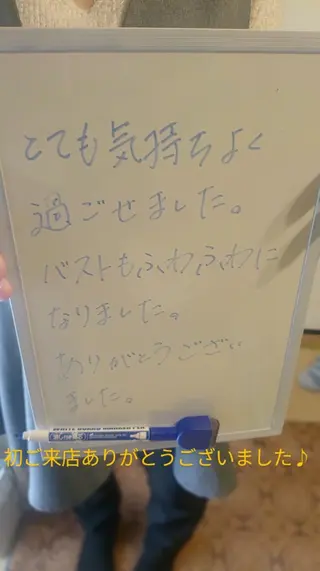 とても気持ちよく
過ごせました。
バストもふわふわに
なりました。
ありがとうござい
ました。
初ご来店ありがとうございました♪